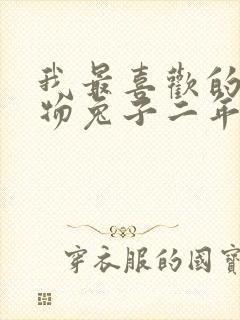 我最喜歡的
物兔子二年
穿衣服的國寶